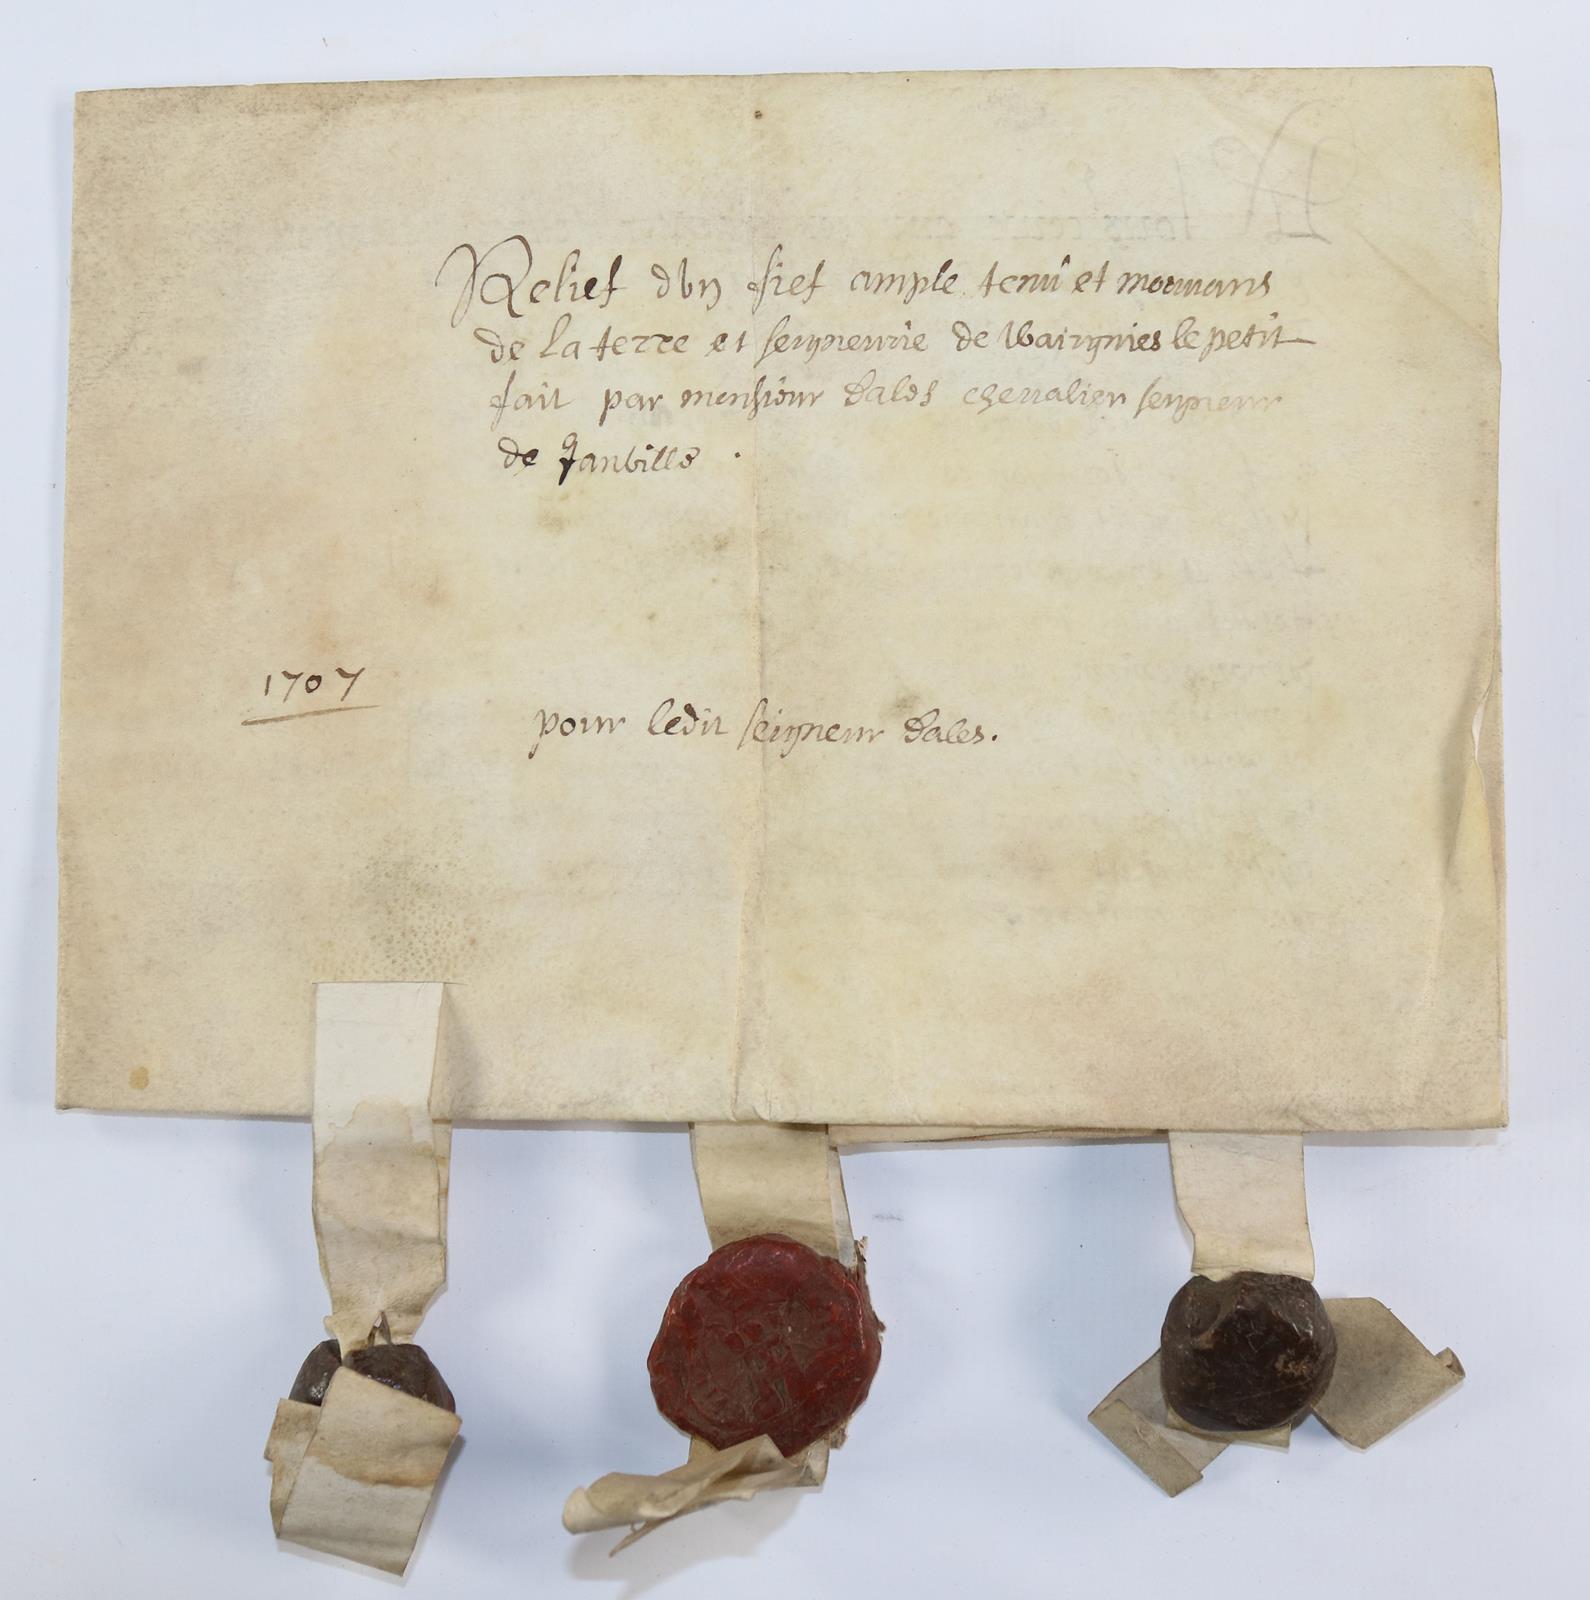 Relief dvn fief ample tenu et mouuans
de la terre et seigneurie de Wairgnies le petit
fait par monsieur dales cheualier seigneur
de Janville .
1707
pour ledit seigneur dales.